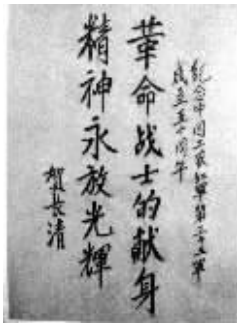 纪念中国工农红军第二十二军
成立五十周年
革命战士的献身
精神永放光輝
贺长清